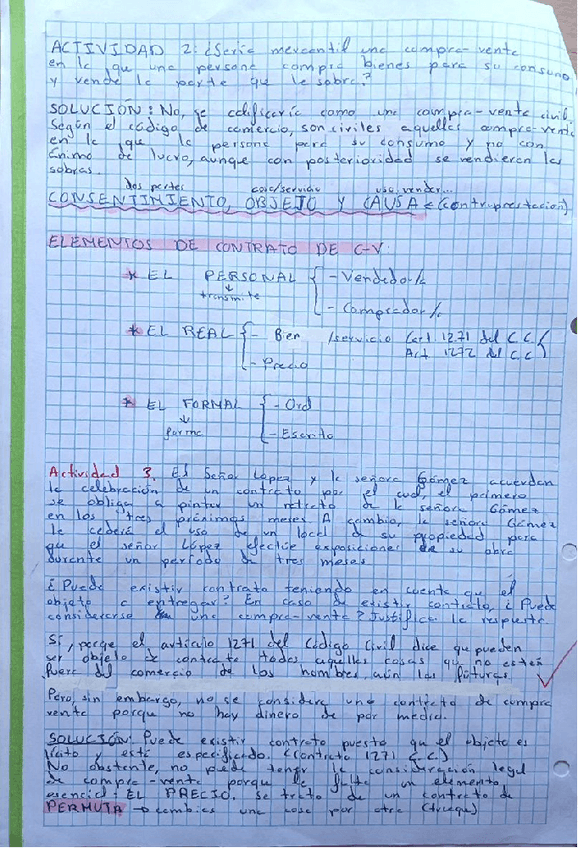 ACTIVIDAD 2: ¿Sería mercantil una compra-venta
en la que una persona compra bienes para su consumo
y vende la parte que le sobra?
SOLUCIÓN: No, se calificaría como una compra-venta civil.
Según el código de comercio, son civiles aquellas compra-venta
en la que la persona para su consumo y no con
Ánimo de lucro, aunque con posterioridad se vendieran las
sobras.
dos partes cosa/servicio uso, vender...
CONSENTIMIENTO, OBJETO Y CAUSA (contraprestación)
ELEMENTOS DE CONTRATO DE C-V
* EL PERSONAL { - Vendedor/a
transmite
- Comprador/a
* EL REAL { - Bien /servicio (art 1271 del C.C.
Art 1272 del C.C)
- Precio
* EL FORMAL { - Oral
forma - Escrito
Actividad 3. El Señor López y la señora Gómez acuerdan
la celebración de un contrato por el cual, el primero
se obliga a pintar un retrato de la señora Gómez
en los tres próximos meses. A cambio, la señora Gómez
le cederá el uso de un local de su propiedad para
que el señor López efectúe exposiciones de su obra
durante un período de tres meses
¿Puede existir contrato teniendo en cuenta que el
objeto a entregar? En caso de existir contrato, ¿Puede
considerarse una compra-venta? Justifica la respuesta
Sí, porque el artículo 1271 del Código Civil dice que pueden
ser objeto de contrato todas aquellas cosas que no estén
fuera del comercio de los hombres, aún las futuras.
Pero, sin embargo, no se considera una contrato de compra
venta porque no hay dinero de por medio.
SOLUCIÓN: Puede existir contrato puesto que el objeto es
lícito y está especificado. (Contrato 1271 C.C.)
No obstante, no puede tener la consideración legal
de compra-venta porque le falta un elemento
esencial: EL PRECIO. Se trata de un contrato de
PERMUTA → cambias una cosa por otra (trueque)